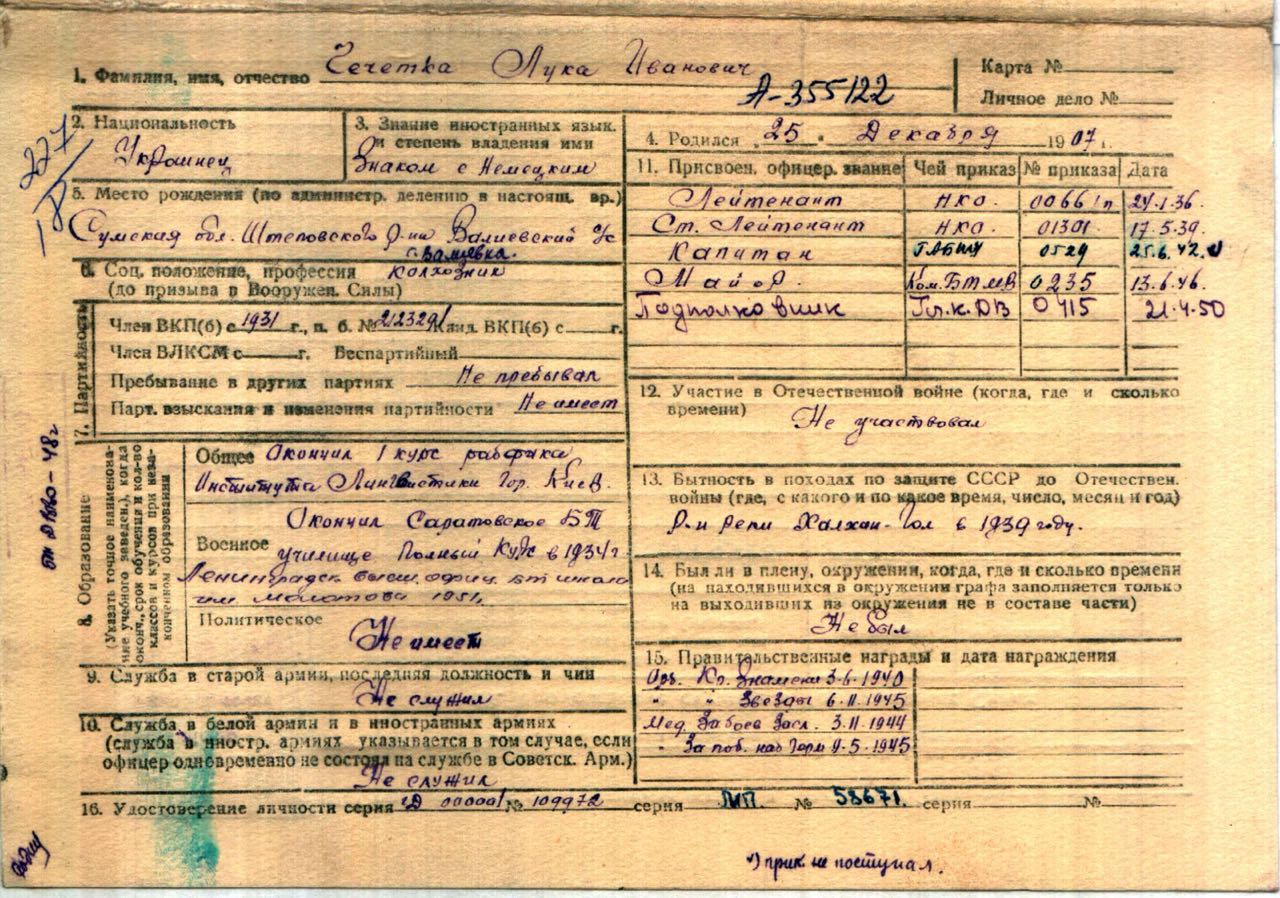 1. Фамилия, имя, отчество Чечетка Лука Иванович
А-355122
Карта №
Личное дело №
227
2. Национальность
Украинец
3. Знание иностранных язык.
и степень владения ими
Знаком с Немецким
4. Родился „25" Декабря 1907 г.
5. Место рождения (по администр. делению в настоящ. вр.)
Сумская обл. Штеповского р-на Валиевский с/с
6. Соц. положение, профессия колхозник
(до призыва в Вооружен. Силы)
7. Партийность
Член ВКП(б) с 1931 г., п. б. № 2123291 Канд. ВКП(б) с г.
Член ВЛКСМ с г. Беспартийный
Пребывание в других партиях Не пребывал
Парт. взыскания и изменения партийности Не имеет
8. Образование
(Указать точное наименова-
ние учебного заведен.), когда
оконч., срок обучения и кол-во
классов и курсов при неза-
конченном образовании
Общее Окончил 1 курс рабфака
Института Лингвистики Гор. Киев.
Окончил Саратовское БТ
Военное училище Полный Курс в 1934 г
Ленинградск. высш. офиц. бт школа
им Молотова 1951г.
Политическое
Не имеет
9. Служба в старой армии, последняя должность и чин
Не служил
10. Служба в белой армии и в иностранных армиях
(служба в иностр. армиях указывается в том случае, если
офицер одновременно не состоял на службе в Советск. Арм.)
Не служил
11. Присвоен. офицер. звание Чей приказ № приказа Дата
Лейтенант НКО. 0066/п 24.1.36.
Ст. Лейтенант НКО. 01301 17.5.39.
Капитан ГАБТУ 0529 25.6.42.
Майор. Ком.БТМВ 0235 13.6.46.
Подполковник Гл.к.ДВ 0415 21.4.50
12. Участие в Отечественной войне (когда, где и сколько
времени)
Не участвовал
13. Бытность в походах по защите СССР до Отечествен.
войны (где, с какого и по какое время, число, месяц и год)
Р-н Реки Халхин-Гол в 1939 году.
14. Был ли в плену, окружении, когда, где и сколько времени
(на находившихся в окружении графа заполняется только
на выходивших из окружения не в составе части)
Не был
15. Правительственные награды и дата награждения
Орд. Кр. Знамени 3-6-1940
" " Звезды 6-11-1945
Мед. За боев Засл. 3-11-1944
" За поб. над Герм 9-5-1945
16. Удостоверение личности серия "Д 00000/ № 109972 серия № 58671. серия №
*) прик. не поступал.